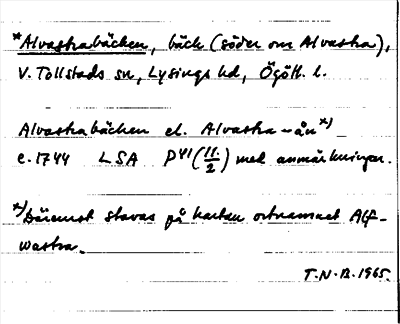 *Alvastrabäcken, bäck (söder om Alvastra),
V. Tollstads sn, Lysings hd, Ögötl. l.
Alvastrabäcken el. Alvastra-ån *)
c. 1744 LSA D 41 (11/2) med anmärkningar.
*) Däremot stavas på kartan ortnamnet Alf-
wastra.
T.N-B. 1965.